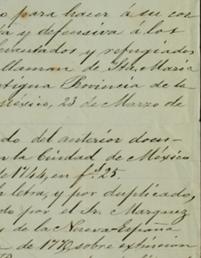 o para hacer á su cos
a y defensiva á los
resentados y refugiados
llaman de Sta. Maria
ntigua Provincia de la
México, 23 de Marzo de
do del anterior docu-
n la Ciudad de México
1744, en f.º 25
letra, y por duplicado,
to por el Sr. Marques
s de la Nueva España
n de 1772, sobre extincion